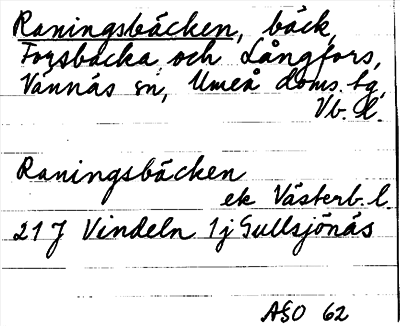 Raningsbäcken, bäck,
Forsbacka och Långfors,
Vännäs sn, Umeå doms.tg,
Vb.l.
Raningsbäcken
ek Västerb.l.
21J Vindeln 1j Gullsjönäs
ASO 62